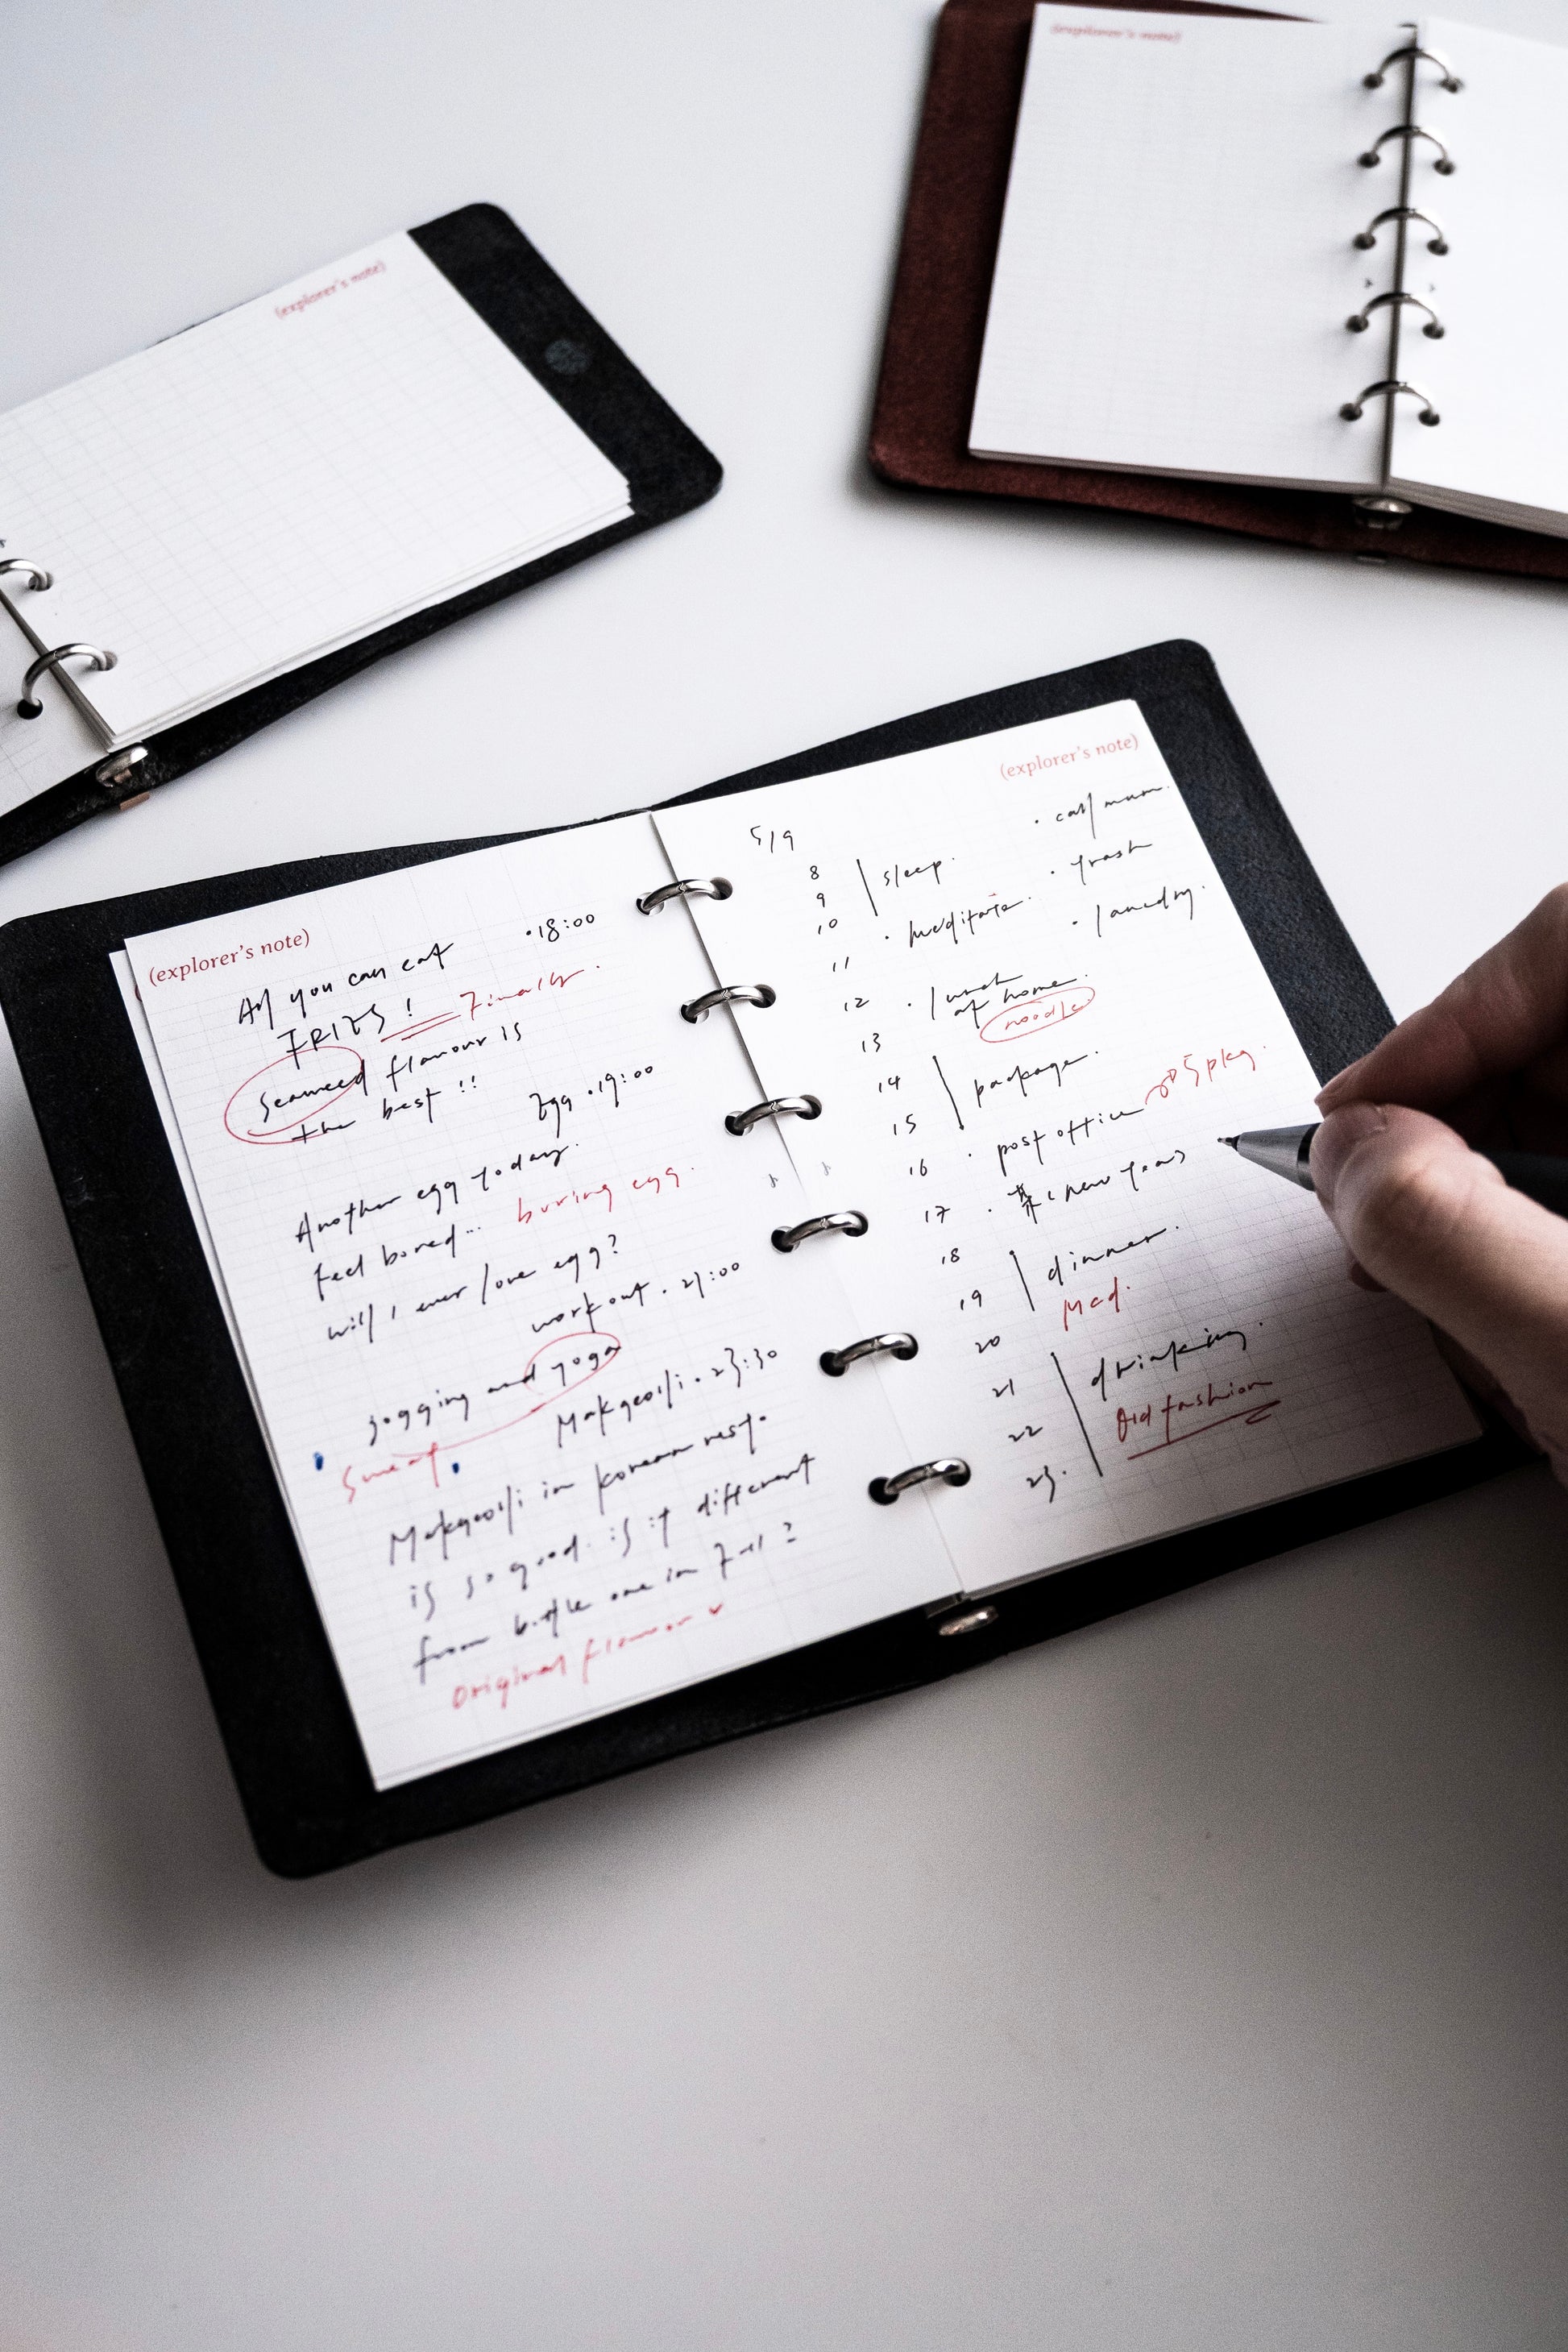 (explorer's note)
(explorer's note)
(explorer's note)
All you can eat ·18:00
FRIES! Finally.
Seaweed flavour is
the best!!
Egg ·19:00
Another egg today.
feel bored... boring egg.
will I ever love egg?
workout · 21:00
jogging and yoga
Sweat.
Makgeolli · 23:30
Makgeolli in korean rest.
is so good. is it different
from bottle one in 7-11?
Original flavour
(explorer's note)
5/9
· call mum.
8 sleep.
· trash
9
10 · meditate.
· laundry.
11
12 · lunch
at home.
13 noodle
14 package.
15
16 · post office 5 pkg.
17 · new years
18 dinner.
19 Mcd.
20
21 drinking.
22 Old fashion
23.